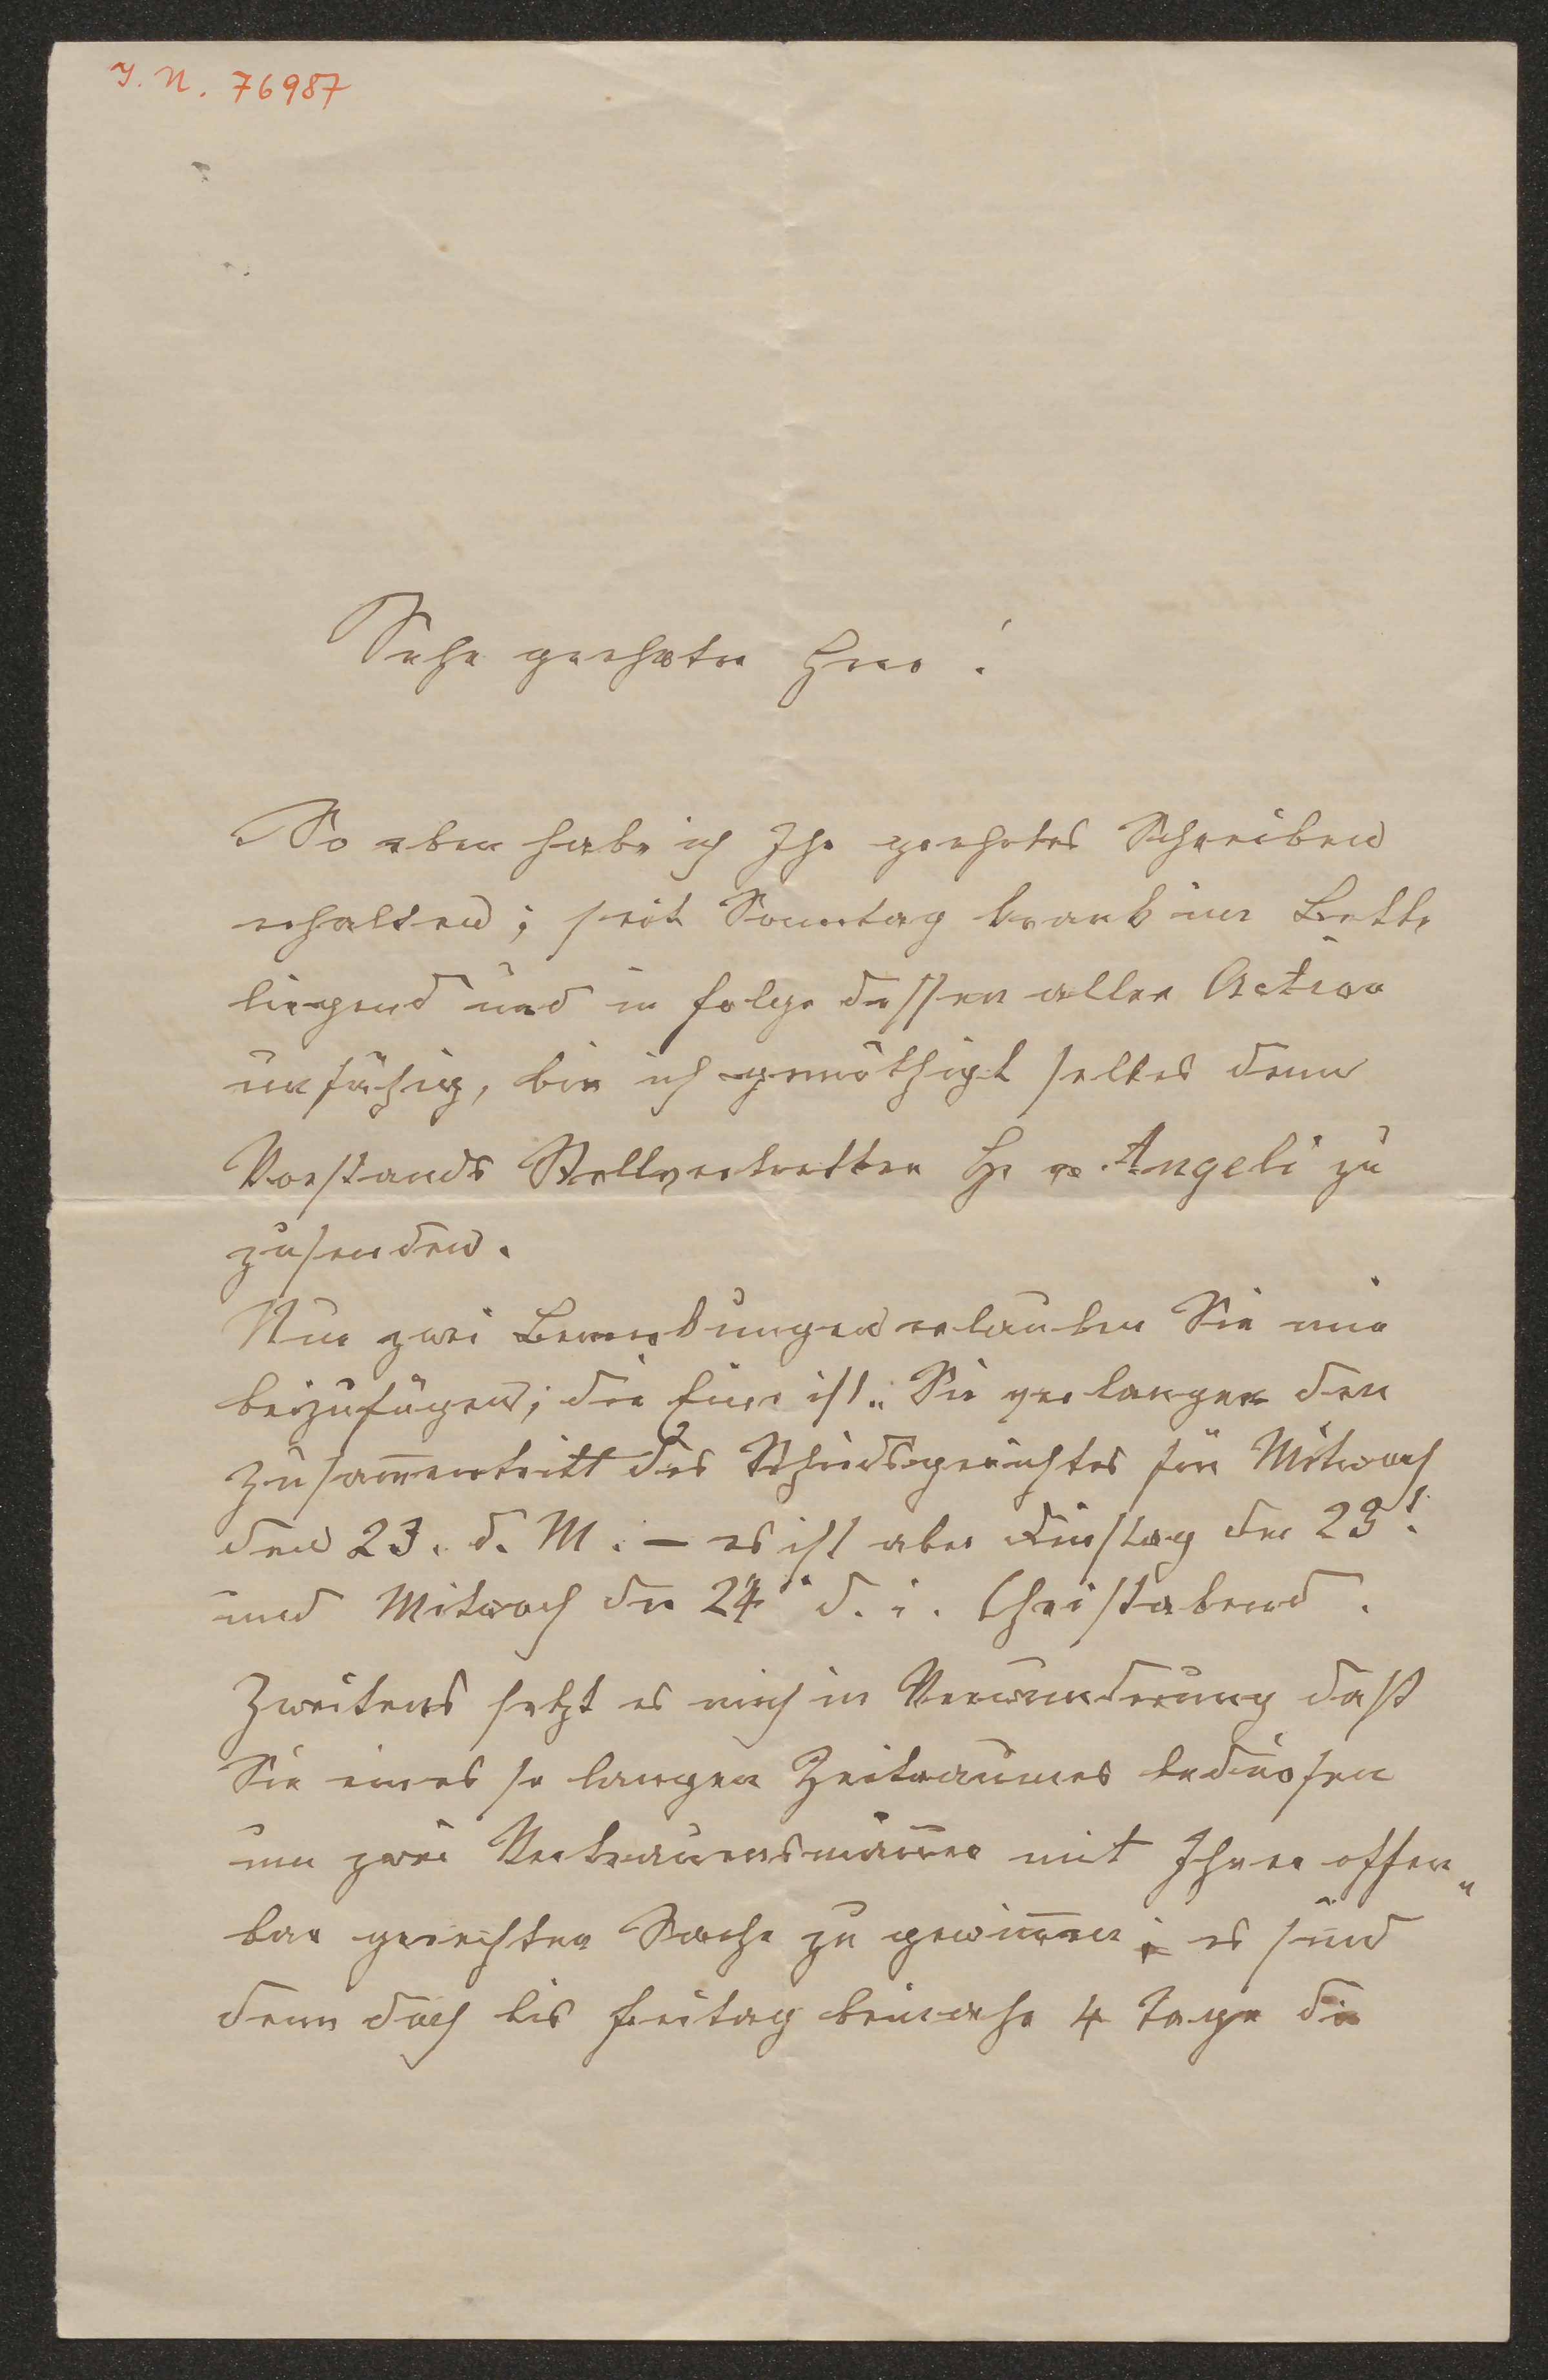 I. N. 76987
Sehr geehrter Herr!
So eben habe ich Ihr geehrtes Schreiben
erhalten; seit Sonntag krank im Bette
liegend und in folge dessen aller Action
unfähig, bin ich genöthigt selbes dem
Vorstands Stellvertretter H. v. Angeli zu
zusenden.
Nur zwei Bemerkungen erlauben Sie mir
beizufügen; die Eine ist: Sie verlangen den
Zusam̅entritt des Schiedsgerichtes für Mitwoch
den 23. d. M. – es ist aber Dinstag der 23t.
und Mitwoch der 24t d. i. Christabend.
Zweitens setzt es mich in Verwunderung daß
Sie eines so langen Zeitraumes bedürfen
um zwei Vertrauensmän̅er mit Ihrer offen„
bar gerechten Sache zu gewin̅en; es sind
denn doch bis Freitag beinahe 4 Tage die